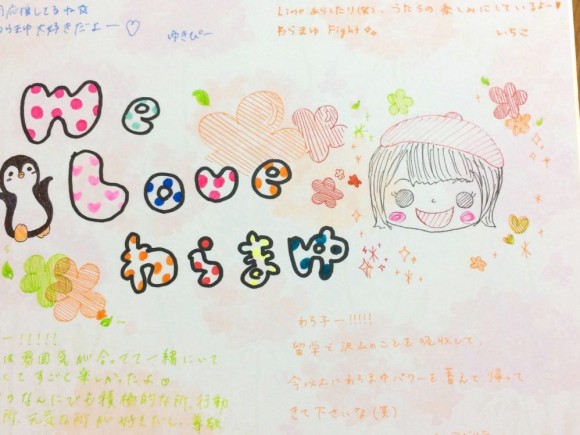 応援してるね☆
わらまゆ大好きだよー♡
ゆきぴー
うたうの楽しみにしているよー
わらまゆ Fight
いちこ
We
Love
わらまゆ
ー!!!!!
は雰囲気が合ってて一緒にいて
してすごく楽しかったよ
なんにでも積極的な所、行動
所、元気な所が好きだし、尊敬
わら子ー!!!!!
留学で沢山のことを吸収して、
今以上にわらまゆパワーを蓄えて帰って
きて下さいな(笑)